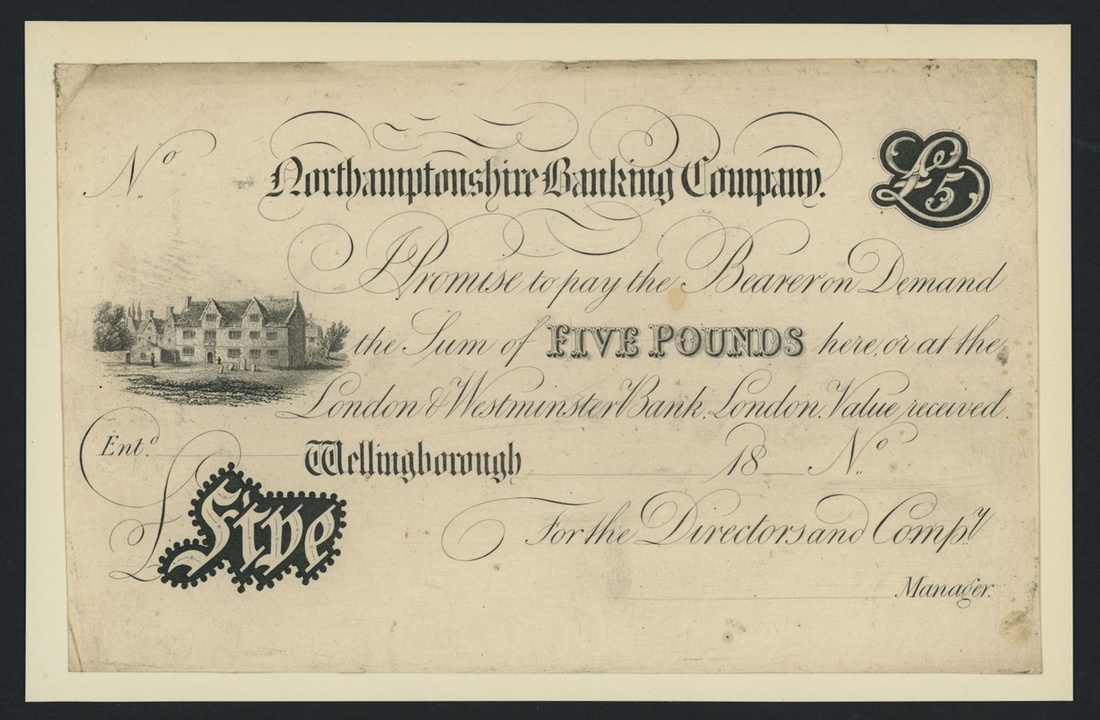 No.
Northamptonshire Banking Company.
£5
I Promise to pay the Bearer on Demand
the Sum of FIVE POUNDS here, or at the
London & Westminster Bank, London. Value received.
Ent.d
Wellingborough 18 No.
£ Five
For the Directors and Compy
Manager.